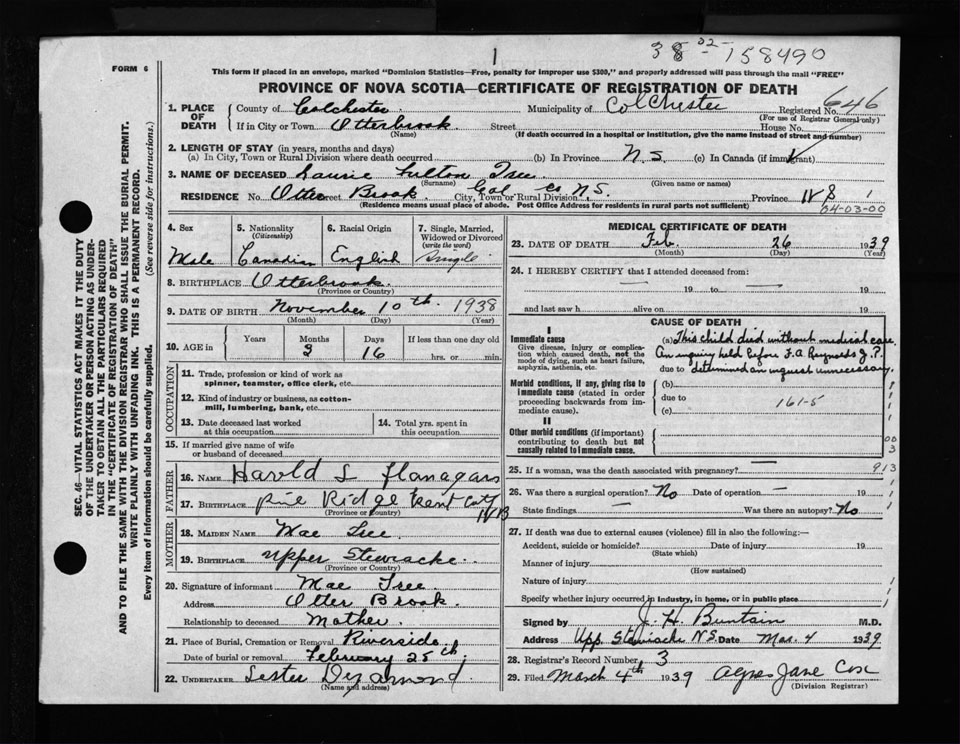 1
38 02 158490
FORM 6
This form if placed in an envelope, marked "Dominion Statistics—Free, penalty for improper use $300," and properly addressed will pass through the mail "FREE"
PROVINCE OF NOVA SCOTIA—CERTIFICATE OF REGISTRATION OF DEATH
1. PLACE OF DEATH County of Colchester Municipality of Colchester Registered No. 646
(For use of Registrar General only)
If in City or Town Otterbrook Street House No.
(Name) (If death occurred in a hospital or institution, give the name instead of street and number)
2. LENGTH OF STAY (in years, months and days)
(a) In City, Town or Rural Division where death occurred (b) In Province N.S. (c) In Canada (if immigrant)
3. NAME OF DECEASED Laurie Fulton Tree
(Surname) (Given name or names)
RESIDENCE No. Otter Street Brook City, Town or Rural Division Col Co N.S. Province N S 1
(Residence means usual place of abode. Post Office Address for residents in rural parts not sufficient) 04-03-00
4. Sex 5. Nationality (Citizenship) 6. Racial Origin 7. Single, Married, Widowed or Divorced (write the word)
Male Canadian English Single
8. BIRTHPLACE Otterbrook
(Province or Country)
9. DATE OF BIRTH November 10th 1938
(Month) (Day) (Year)
10. AGE in Years Months Days If less than one day
3 16 hrs. or min.
OCCUPATION
11. Trade, profession or kind of work as spinner, teamster, office clerk, etc.
12. Kind of industry or business, as cotton-mill, lumbering, bank, etc.
13. Date deceased last worked at this occupation 14. Total yrs. spent in this occupation
15. If married give name of wife or husband of deceased
FATHER
16. NAME Harold L Flanagans
17. BIRTHPLACE Pine Ridge Kent Cnty NB
(Province or Country)
MOTHER
18. MAIDEN NAME Mae Tree
19. BIRTHPLACE Upper Stewiacke
(Province or Country)
20. Signature of informant Mae Tree
Address Otter Brook
Relationship to deceased Mother
21. Place of Burial, Cremation or Removal Riverside
Date of burial or removal February 28th
22. UNDERTAKER Lester
(Name and address)
MEDICAL CERTIFICATE OF DEATH
23. DATE OF DEATH Feb. 26 1939
(Month) (Day) (Year)
24. I HEREBY CERTIFY that I attended deceased from:
— 19 to — 19
and last saw h alive on — 19
CAUSE OF DEATH
I
Immediate cause
Give disease, injury or complication which caused death, not the mode of dying, such as heart failure, asphyxia, asthenia, etc.
(a) This child died without medical care.
An inquiry held before F.A. Reynolds J.P.
due to determined an inquest unnecessary.
Morbid conditions, if any, giving rise to immediate cause (stated in order proceeding backwards from immediate cause)
(b)
due to 161-5
(c)
II
Other morbid conditions (if important) contributing to death but not causally related to immediate cause.
00
3
913
25. If a woman, was the death associated with pregnancy? —
26. Was there a surgical operation? No Date of operation — 19
State findings — Was there an autopsy? No
27. If death was due to external causes (violence) fill in also the following:—
Accident, suicide or homicide? Date of injury 19
(State which)
Manner of injury
(How sustained)
Nature of injury
Specify whether injury occurred in industry, in home, or in public place
Signed by J. H. Buntain M.D.
Address Upp. Stewiacke N.S. Date Mar. 4 1939
28. Registrar's Record Number 3
29. Filed March 4th 1939 Agnes Jane Cox
(Division Registrar)
SEC. 46—VITAL STATISTICS ACT MAKES IT THE DUTY
OF THE UNDERTAKER OR PERSON ACTING AS UNDER-
TAKER TO OBTAIN ALL THE PARTICULARS REQUIRED
IN THE "CERTIFICATE OF REGISTRATION OF DEATH"
AND TO FILE THE SAME WITH THE DIVISION REGISTRAR WHO SHALL ISSUE THE BURIAL PERMIT.
WRITE PLAINLY WITH UNFADING INK. THIS IS A PERMANENT RECORD.
Every item of information should be carefully supplied. (See reverse side for instructions.)